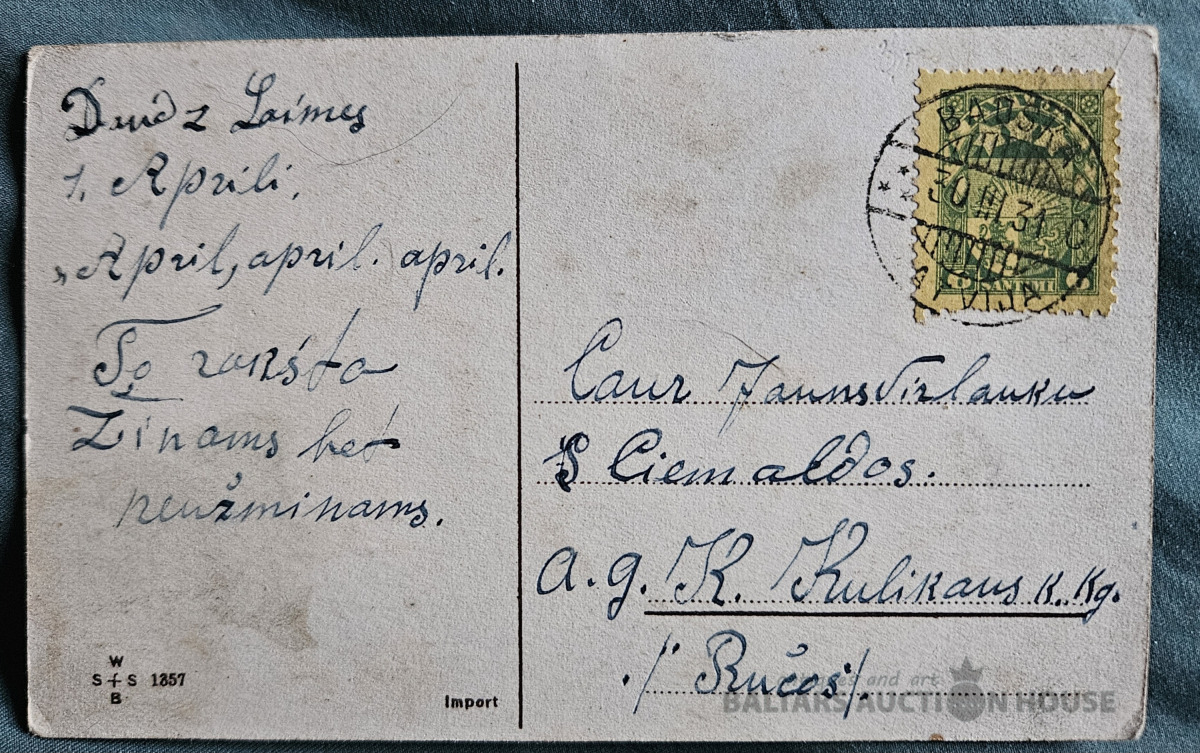 Daudz Laimes
1. Aprīlī.
„April, april. april.
To rakšta
Zinams bet
neužminams.
W
S+S 1357
B
Import
BAUSKA
30.III.31 C
LATVIJA
SANTIMI
Caur JaunsVirlauku
Ciemaldos.
a.g. K. Kulikaus k. kg.
./ Ručos/.
antiques and art
BALTARS AUCTION HOUSE